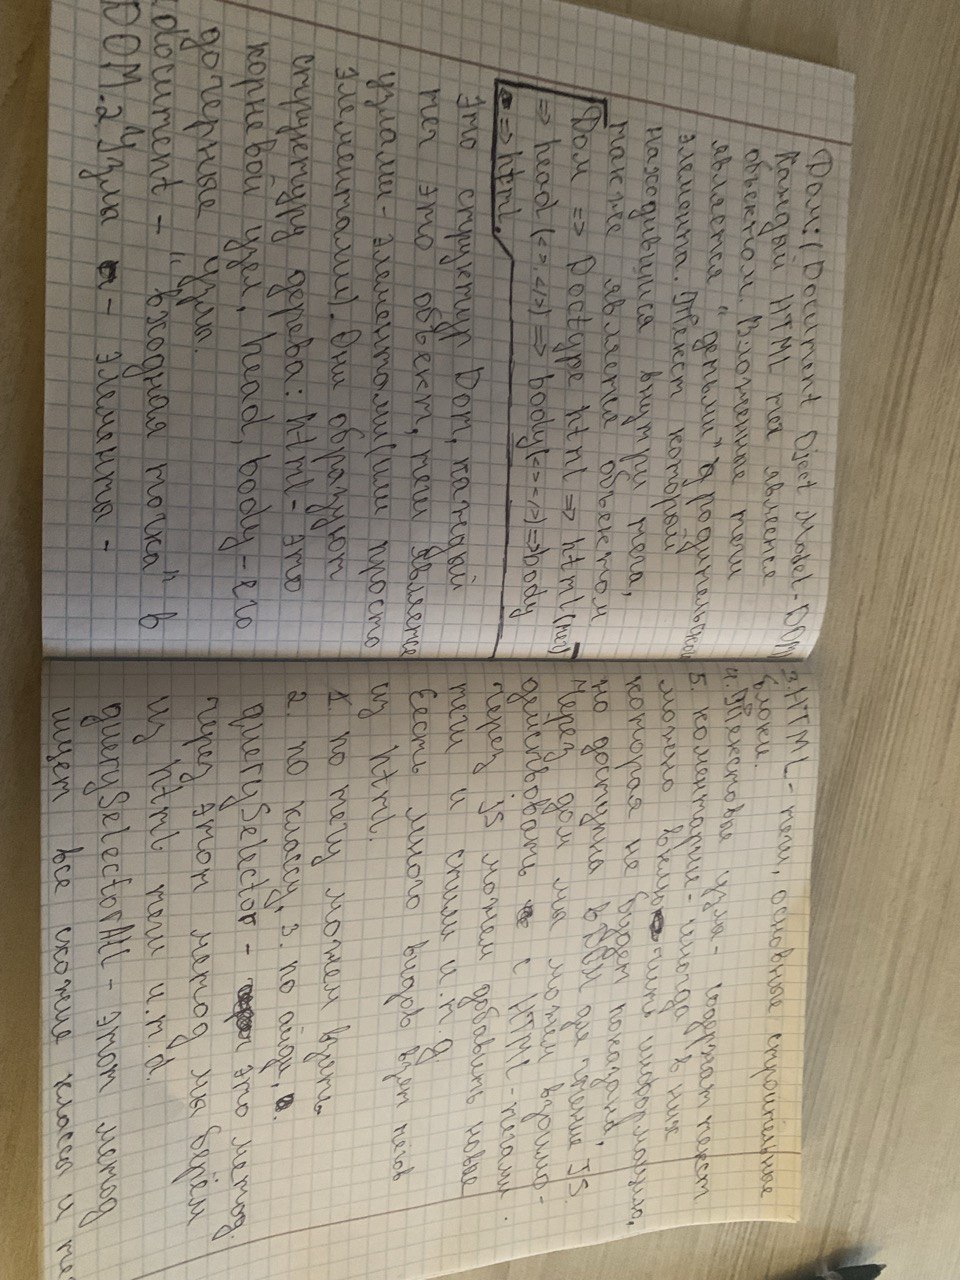 Дом: (Document Oject Model - DOM)
Каждый HTML тег является
объектом. Вложенные теги
является "детьми" родительской
элемента. Текст который
находившися внутри тега,
также является объектом
Дом => Doctype html => html (тег)
=> head (<>,</>) => body(<><>) => body
=> html.
Это структур Dom, каждый
тег это объект, теги является
узлами - элементоми(или просто
элементами). Они образуют
структуру дерева: html - это
корневой узел, head, body - его
дочерные узлы.
document - "входная точка" в
DOM. 2. Узлы - элементы -
3. HTML - теги, основные строительные
блоки.
4. Текстовые узлы - содержат текст
5. коментарии - иногда в них
можно включить информацию,
которая не будет показана,
но доступна в DOM для чтение JS
Через дом мы можем взоимо-
действовать с HTML - тегами.
через js можем добавить новые
теги и стили и.т.д.
Есть много видов взет тегов
из html.
1. по тегу можем взуть
2. по классу, 3. по айди,
querySelector - это метод
через этот метод мы берём
из html теги и.т.d.
querySelectorAll - этот метод
ищет все схожие классы и те